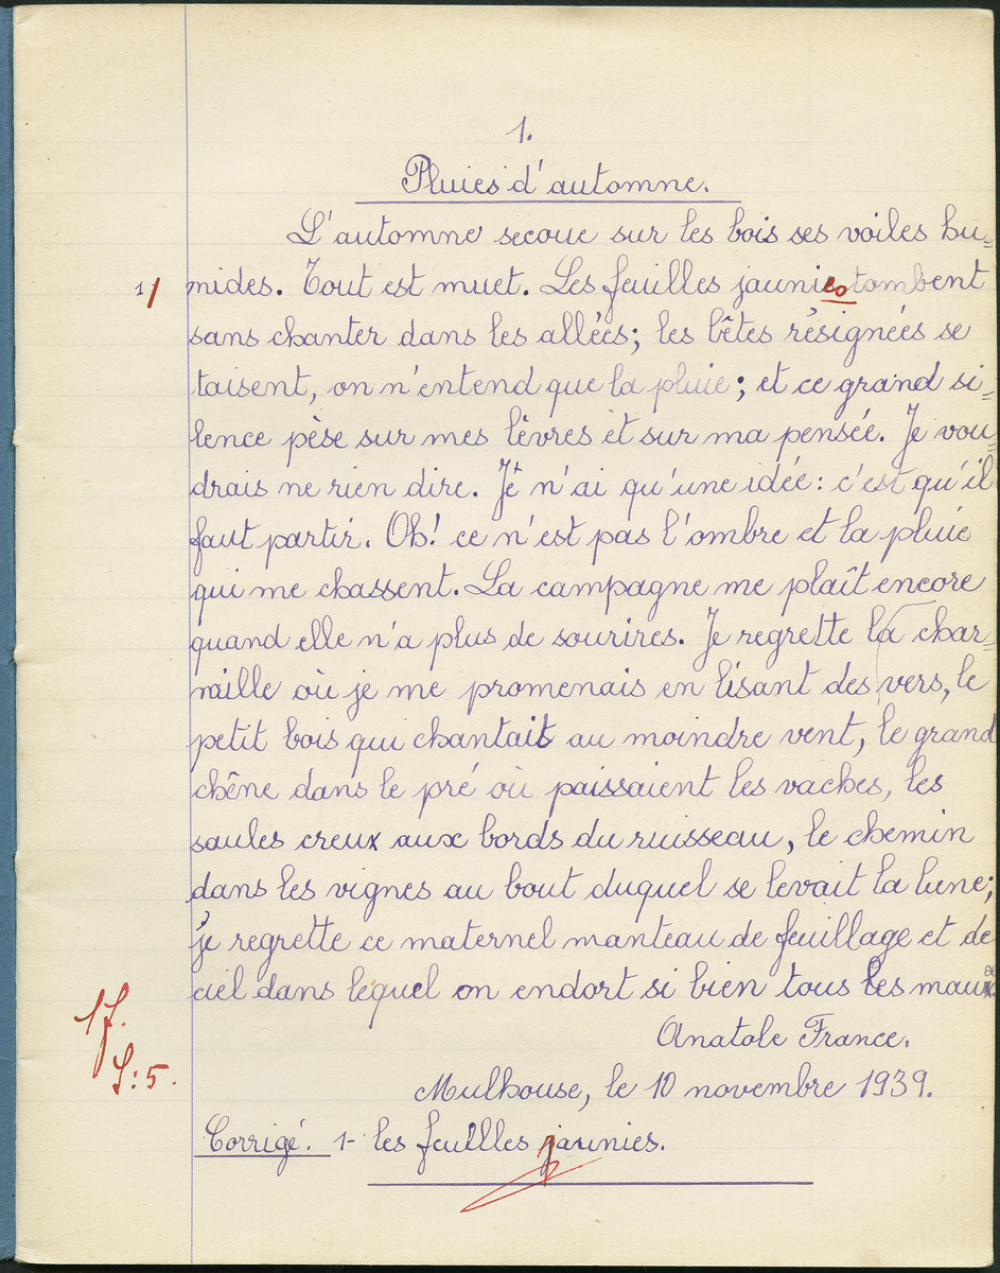 1.
Pluies d'automne.
L'automne secoue sur les bois ses voiles hu=
1/ mides. Tout est muet. Les feuilles jaunies tombent
sans chanter dans les allées; les bêtes résignées se
taisent, on n'entend que la pluie; et ce grand si=
lence pèse sur mes lèvres et sur ma pensée. Je vou=
drais ne rien dire. Je n'ai qu'une idée: c'est qu'il
faut partir. Oh! ce n'est pas l'ombre et la pluie
qui me chassent. La campagne me plaît encore
quand elle n'a plus de sourires. Je regrette la char=
maille où je me promenais en lisant des vers, le
petit bois qui chantait au moindre vent, le grand
chêne dans le pré où paissaient les vaches, les
saules creux aux bords du ruisseau, le chemin
dans les vignes au bout duquel se levait la lune;
je regrette ce maternel manteau de feuillage et de
ciel dans lequel on endort si bien tous les maux
1f.
Anatole France.
S: 5.
Mulhouse, le 10 novembre 1939.
Corrigé. 1- les feuilles jaunies.